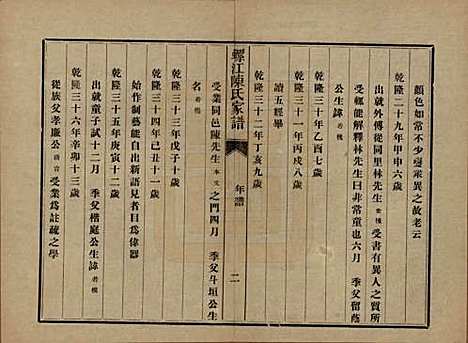 顏色如常不少變衆異之故老云
乾隆二十九年甲申六歲
出就外傅從同里林先生 受書有異人之質所
受輒能解釋林先生曰非常童也六月 季父留蔭
公生諱
乾隆三十年乙酉七歲
乾隆三十一年丙戌八歲
讀五經畢
乾隆三十二年丁亥九歲
螺江陳氏家譜
年譜
二
受業同邑陳先生 之門四月 季父斗垣公生
名
乾隆三十三年戊子十歲
乾隆三十四年己丑十一歲
始作制藝能自出新語見者目爲偉器
乾隆三十五年庚寅十二歲
出就童子試十二月 季父楷庭公生諱
乾隆三十六年辛卯十三歲
從族父孝廉公 受業爲註疏之學